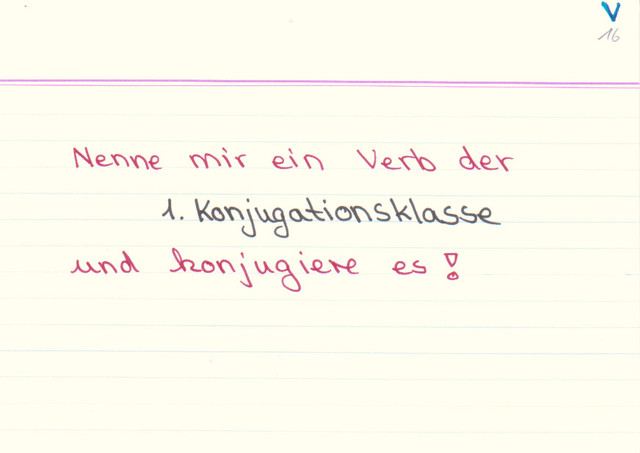 V
16
Nenne mir ein Verb der
1. Konjugationsklasse
und konjugiere es!